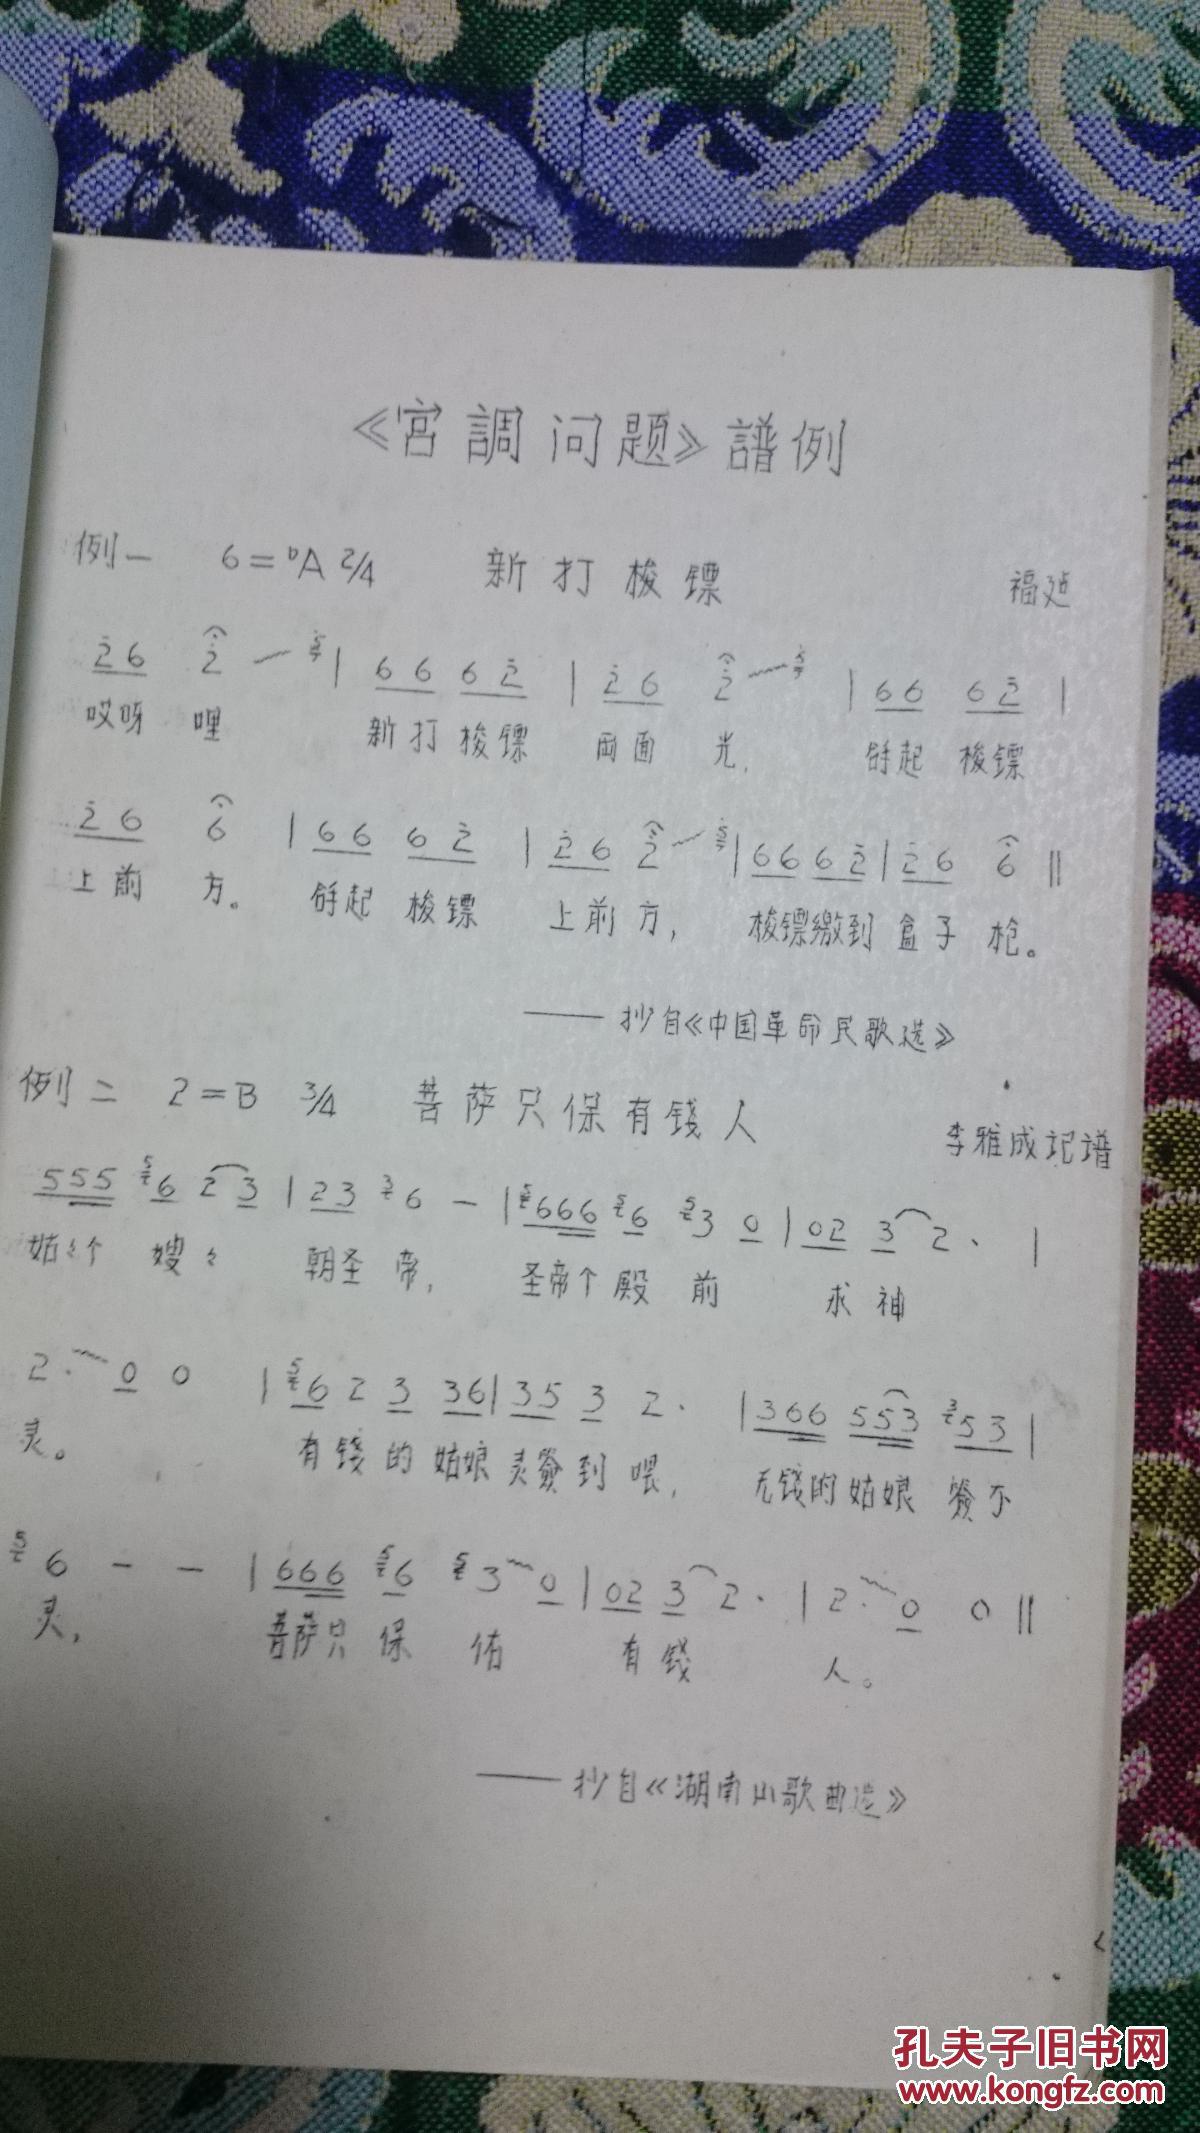 《宮調问题》譜例
例一 6=ᵇA 2/4 新打梭镖 福建
2̇6 2̇ | 66 62̇ | 2̇6 2̇ | 66 62̇ |
哎呀哩 新打梭镖 两面光, 梭镖
2̇6 6 | 66 62̇ | 2̇6 2̇ | 6662̇ | 2̇6 6 ‖
上前方。 梭镖 上前方, 梭镖缴到盒子枪。
—— 抄自《中国革命民歌选》
例二 2=B 3/4 菩萨只保有钱人
李雅成记谱
555 ⁵6 23 | 23 ³6 - | ⁵666 ⁵6 ⁵3 0 | 02 3 2. |
姑々个 嫂々 朝圣帝, 圣帝个殿前 求神
2. 0 0 | ⁵6 2 3 36 | 35 3 2. | 366 553 ³53 |
灵。 有钱的姑娘灵簽到喂, 无钱的姑娘簽不
⁵6 - - | 666 ⁵6 ⁵3 0 | 02 3 2. | 2. 0 0 ‖
灵, 菩萨只保佑 有钱 人。
—— 抄自《湖南山歌曲选》
孔夫子旧书网
www.kongfz.com